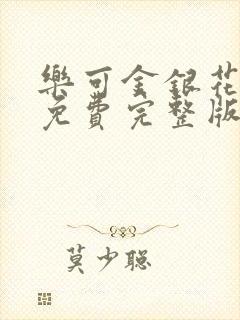 樂可金銀花
免費完整版
莫少聰